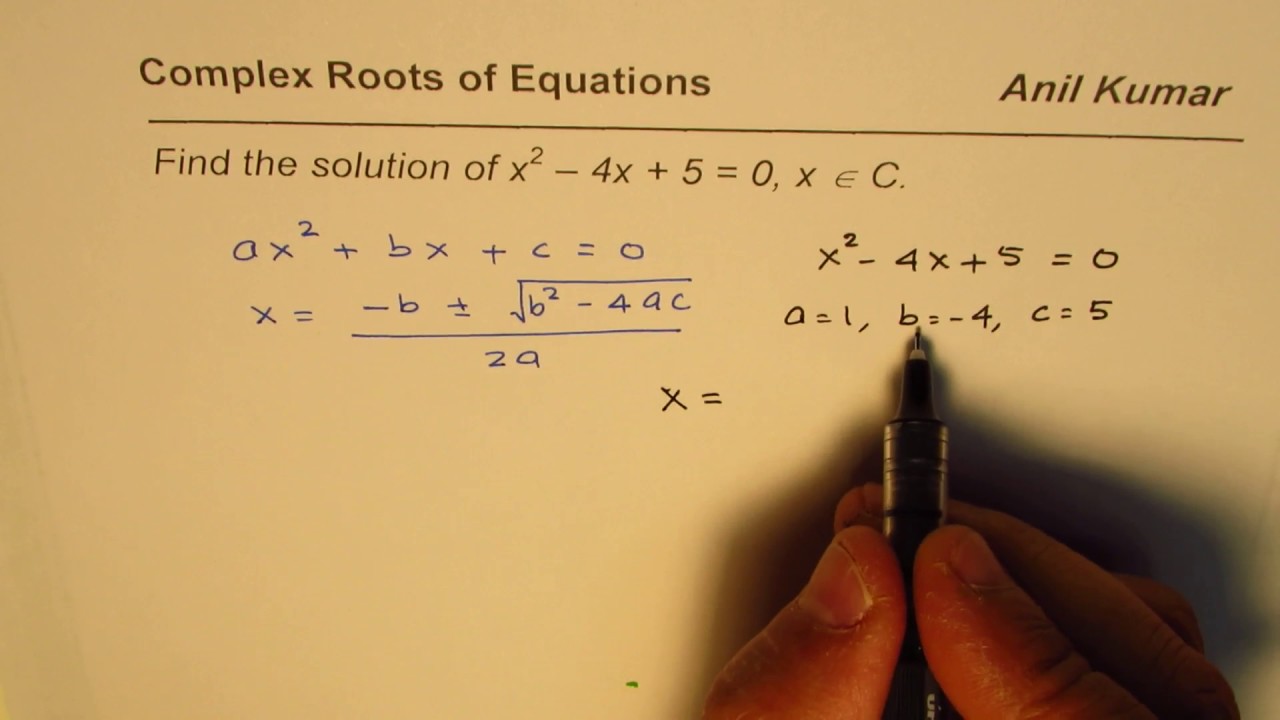 Complex Roots of Equations Anil Kumar
Find the solution of x² – 4x + 5 = 0, x ∈ C.
ax² + bx + c = 0
x = (-b ± √(b² - 4ac)) / 2a
x² - 4x + 5 = 0
a = 1, b = -4, c = 5
x =